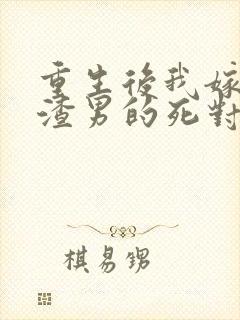 重生後我嫁
渣男的死對
棋易甥